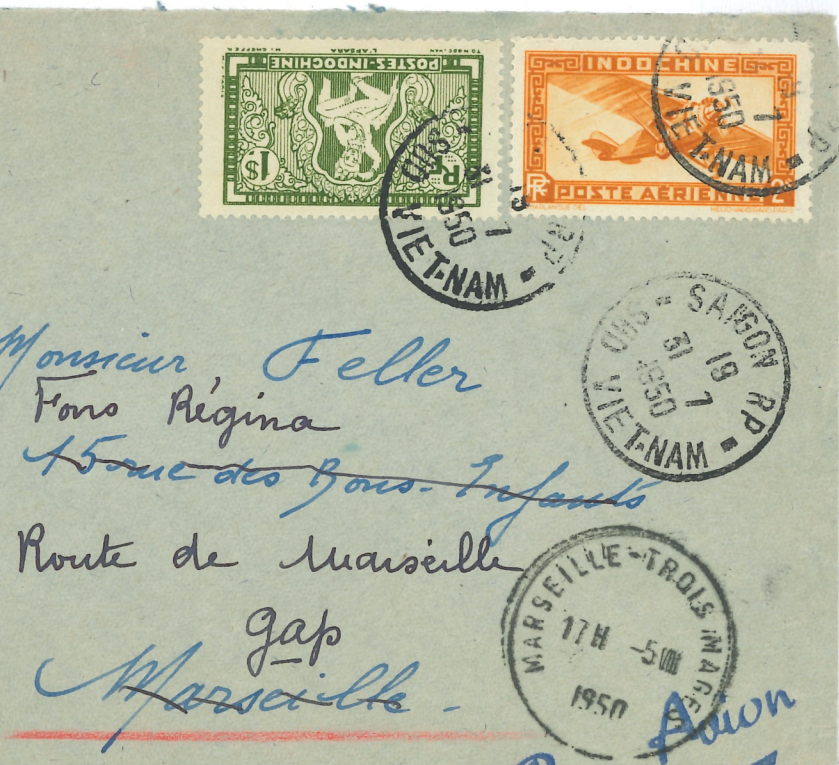 TONDET-VAN L'APSARA H. CHEFFER
POSTES-INDOCHINE
1$ RF
INDOCHINE
RF POSTE AÉRIENNE 2$
1950 7
VIET-NAM
SAIGON RP
31 7
1950
VIET-NAM
SAIGON RP
19
31 7
1950
VIET-NAM
Monsieur Feller
Fons Régina
15 rue des Bons-Enfants
Route de Marseille
Gap
Marseille.
MARSEILLE-TROIS MAGES
17H -5 VIII
1950
Par Avion